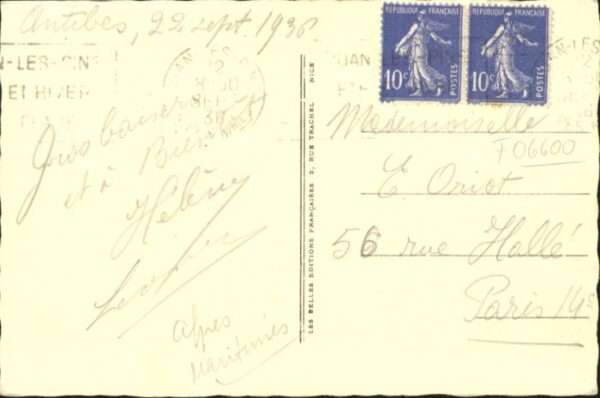 Antibes, 22 sept 1936
N-LES-PINS
ET HIVER
Gros baisers
et à Bientôt
Hélène
Alpes
Maritimes
LES BELLES EDITIONS FRANÇAISES 2, RUE TRACHEL NICE
JUAN-LES-PINS
RÉPUBLIQUE FRANÇAISE
10c
POSTES
RÉPUBLIQUE FRANÇAISE
10c
POSTES
Mademoiselle
F 06600
E. Oriot
56 rue Hallé
Paris 14e